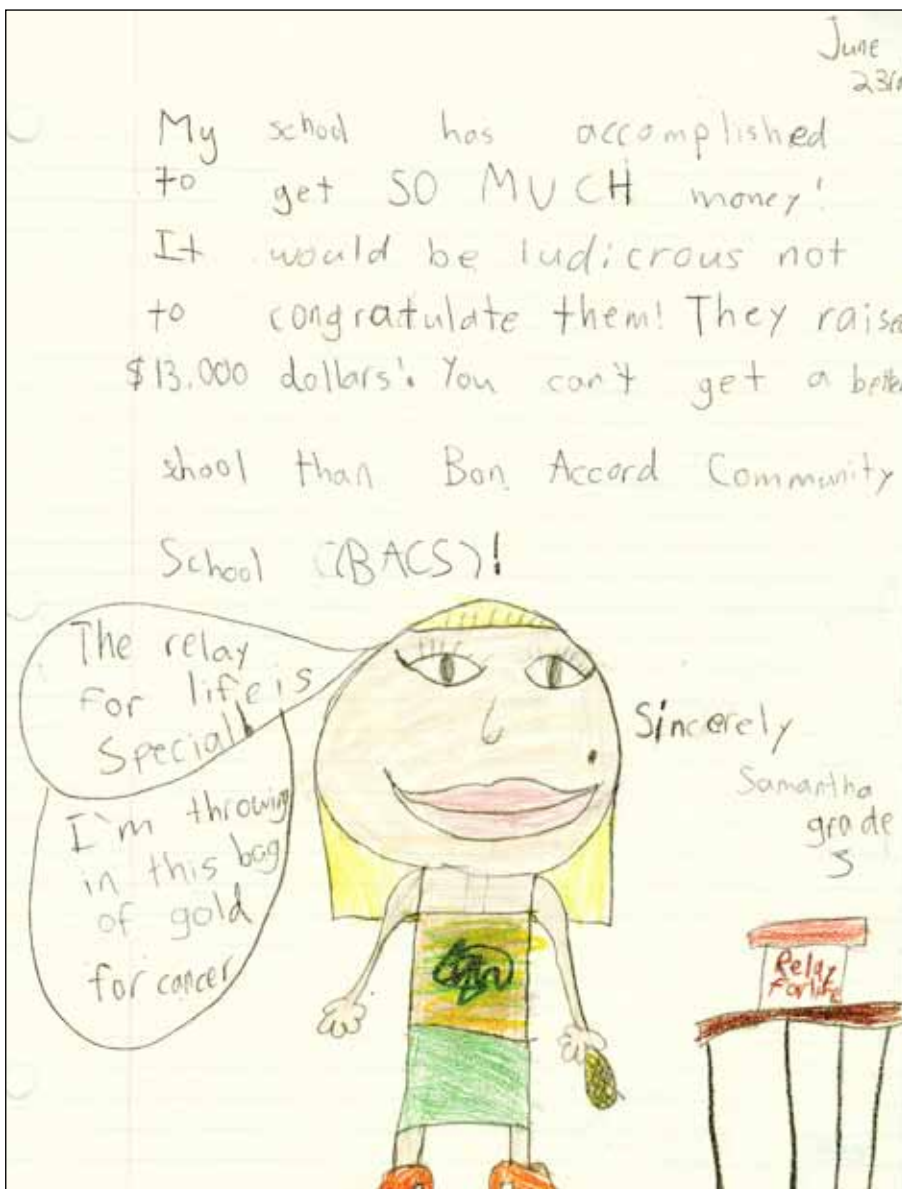 June
My school has accomplished
to get SO MUCH money!
It would be ludicrous not
to congratulate them! They raise
$13,000 dollars! You can't get a bette
shool than Bon Accord Community
School (BACS)!
The relay
for life is
Special!
I'm throwing
in this bag
of gold
for cancer
Sincerely
Samantha
grade
5
Relay
For life